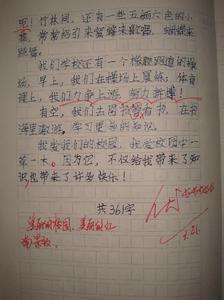 吧！竹林间，还有一些五颜六色的小
花，常常招引来蜜蜂来歌唱，蝴蝶来
跳舞。
我们学校还有一个橡胶跑道的操
场。早上，我们在操场上晨练，体育
课上，我们力争上游，努力拼搏！
有空，我们去图书馆看书，在书
海里遨游，学习更多的知识。
我爱我们的校园，我爱校园中一
草一木。因为它，不仅给我带来了知
识也带来了许多快乐！
共361字
美丽的校园，美丽的
5.21.